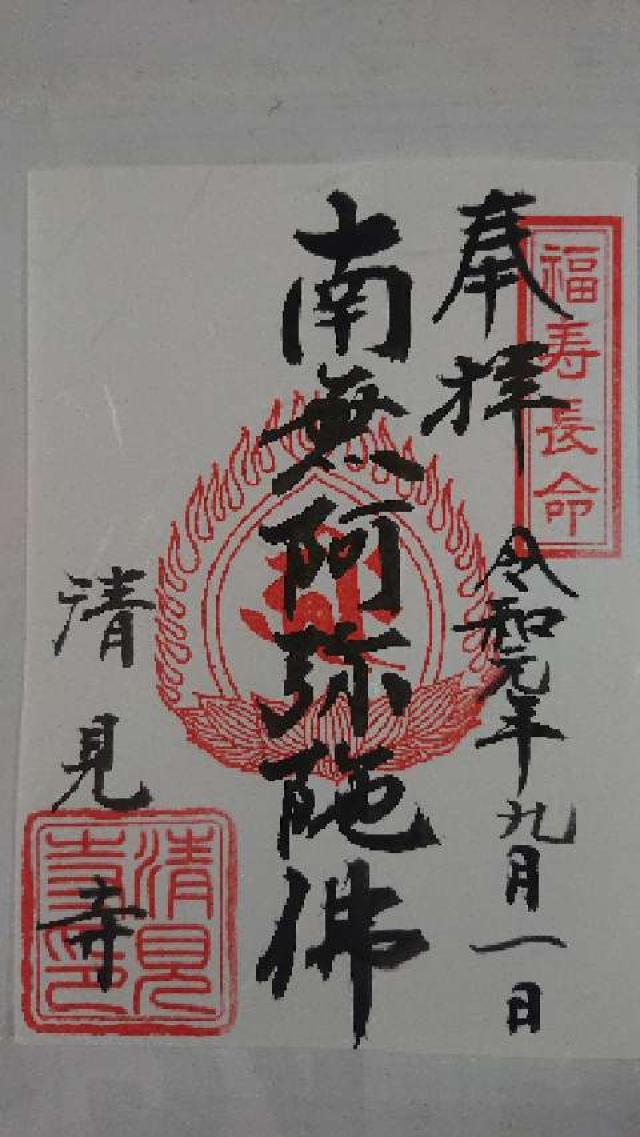 福寿長命
奉拝
令和元年九月一日
南無阿弥陁佛
清見寺
清見寺印